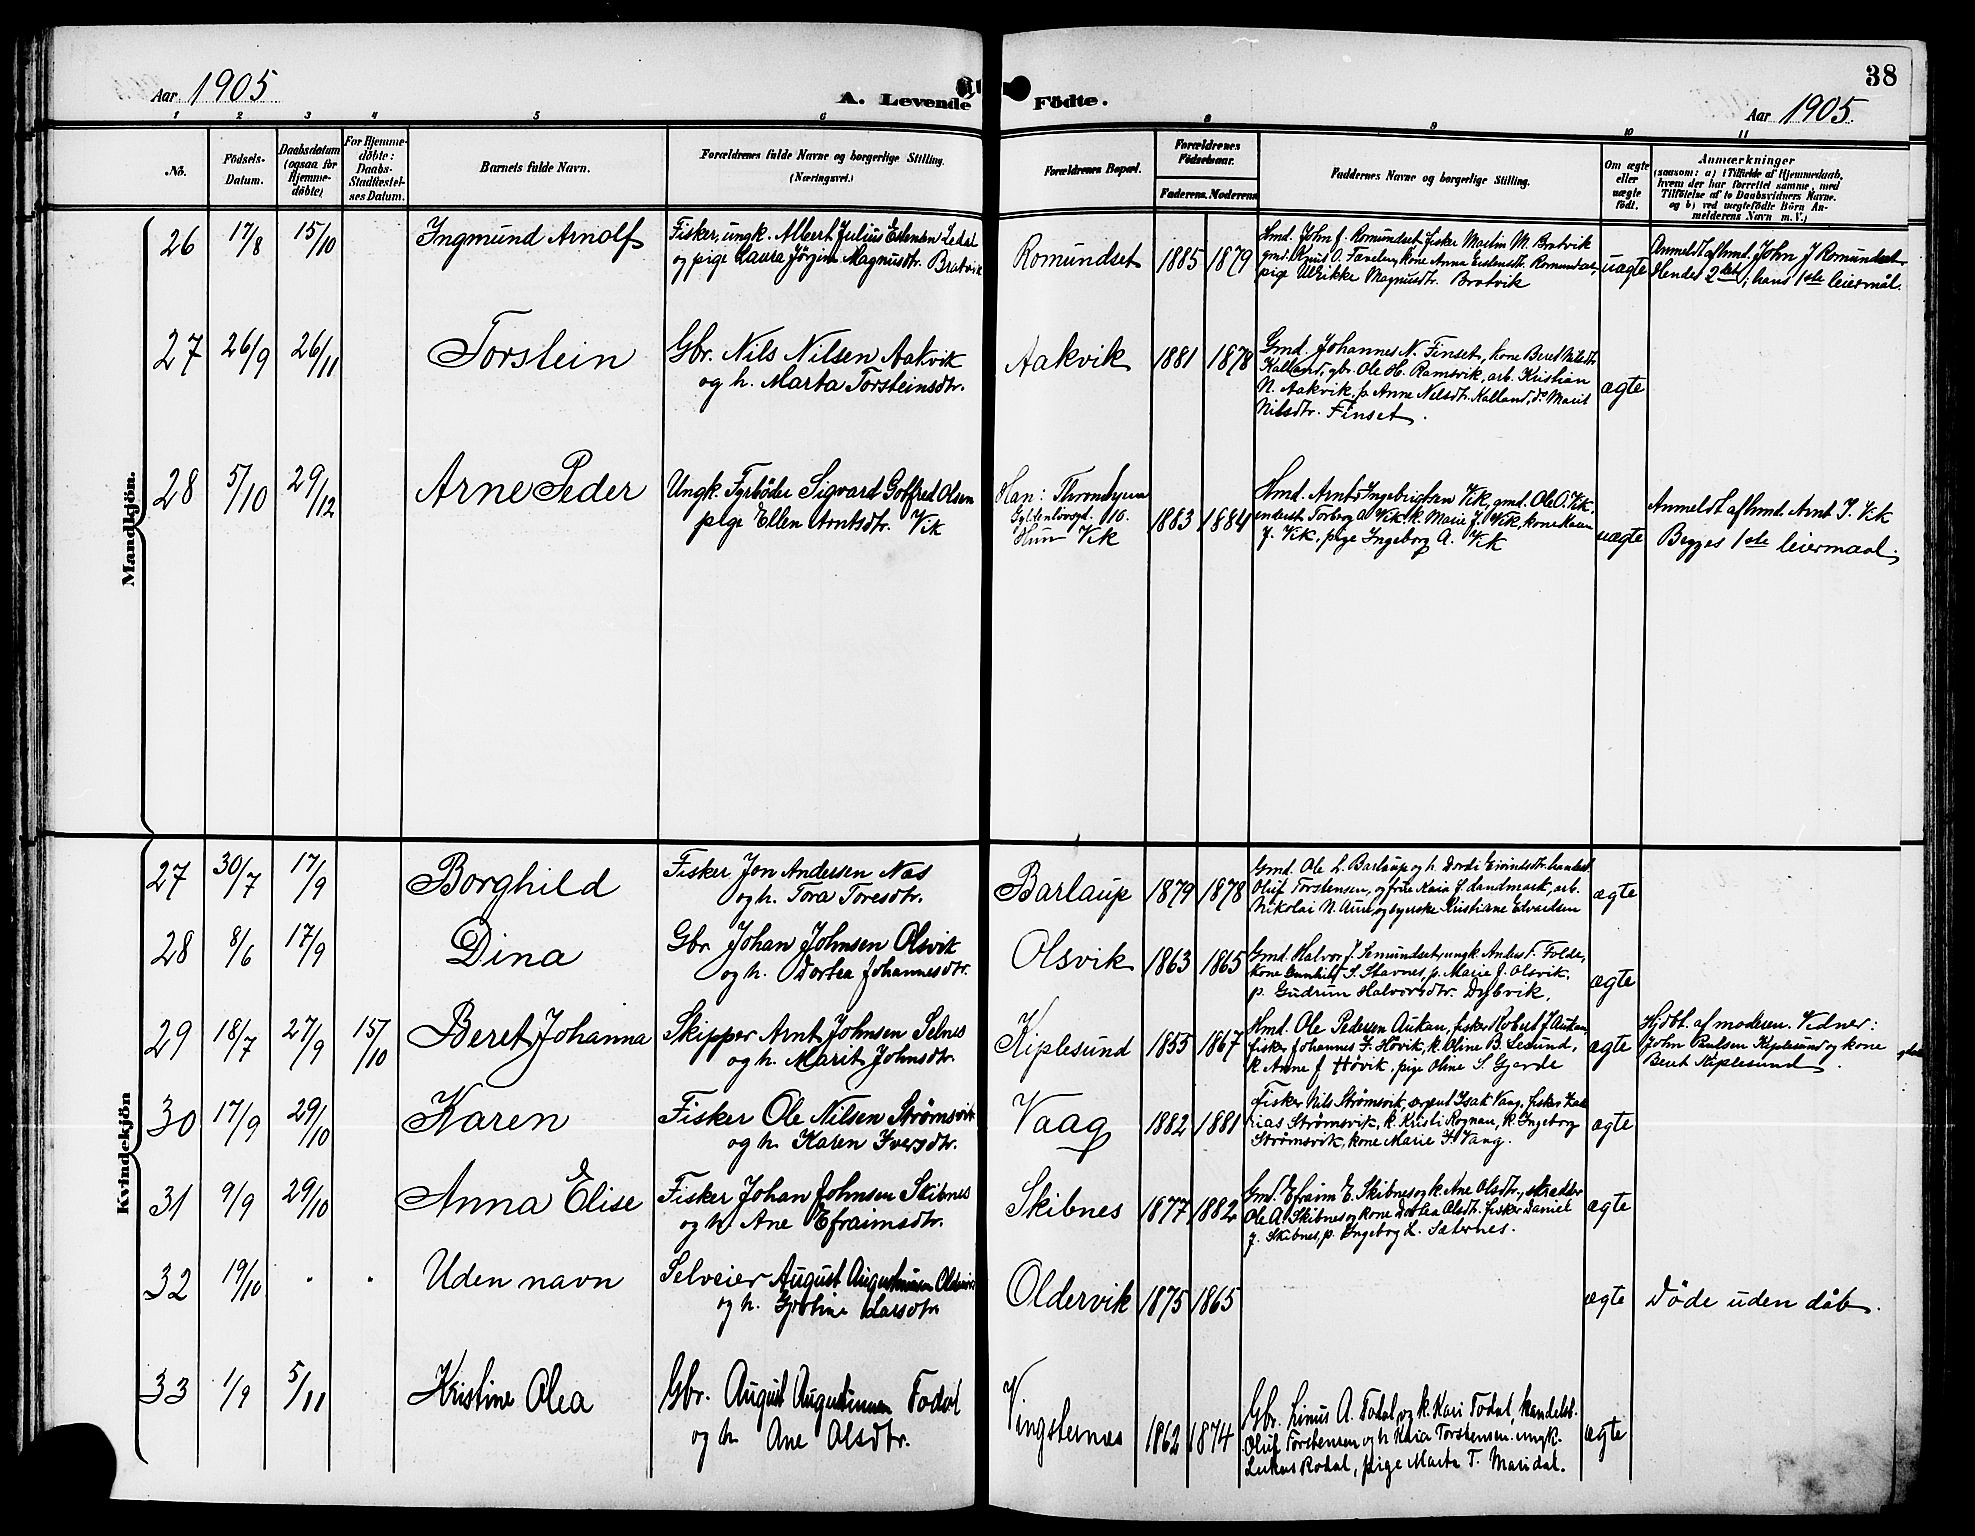 Aar 1905
A. Levende Födte.
38
Aar 1905.
1 2 3 4 5 6 8 9 10 11
No.
Födsels-Datum.
Daabsdatum (ogsaa for Hjemmedöbte)
For Hjemmedöbte: Daabs-Stadfæstelses Datum.
Barnets fulde Navn.
Forældrenes fulde Navne og borgerlige Stilling.
(Næringsvei.)
Forældrenes Bopæl.
Forældrenes Födselsaar.
Faderens. Moderens
Faddernes Navne og borgerlige Stilling.
Om ægte eller uægte födt.
Anmærkninger
(saasom: a) i Tilfælde af Hjemmedaab, hvem der har forrettet samme, med Tilföielse af to Daabsvidners Navne. og b) ved uægtefödte Börn Anmelderens Navn m. V.)
Mandkjön.
26 17/8 15/10 Ingmund Arnolf
Fisker, ungk. Albert Julius Estensen
og pige Laura Jörgine Magnusdtr. Bratvik
Romundset 1885 1879
Hmd. John J. Romundset, fisker Martin M. Bratvik
kone Anna Estensdtr. Romundset,
pige Ulrikke Magnusdtr. Bratvik
uægte
Anmeldt af hmd. John J Romundset
Hendes 2det, hans 1ste leiermål.
27 26/9 26/11 Torstein
Gbr. Nils Nilsen Aakvik
og h. Marta Torsteinsdtr.
Aakvik 1881 1878
Gmd. Johannes N. Finset, kone Beret Nilsdtr.
Kalland, gbr. Ole H. Ramsvik, arb. Kristian
N. Aakvik, p. Anne Nilsdtr. Kalland, do Marit
Nilsdtr. Finset.
ægte
28 5/10 29/12 Arne Peder
Ungk. Fyrböder Sigvard Gotfred Olsen
pige Ellen Arntsdtr. Vik
Han: Throndhjem
Gyldenlövsgd. 10.
Hun Vik
1883 1884
Hmd. Arnt Ingebrigtsen Vik, gmd. Ole O. Vik,
Torberg A. Vik, k. Marie J. Vik, kone Karen
J. Vik, pige Ingeborg A. Vik
uægte
Anmeldt af hmd. Arnt I. Vik
Begges 1ste leiermaal.
Kvindekjön
27 30/7 17/9 Borghild
Fisker Jon Andersen Næs
og h. Tora Toresdtr.
Barlaup 1879 1878
Gmd. Ole L. Barlaup og h. Dordi Eivindsdtr.
Oluf Torstensen, og frue Kaia J. Landmark, arb.
Nikolai N. Aure, og syerske Kristiane Edvardsen
ægte
28 8/6 17/9 Dina
Gbr Johan Johnsen Olsvik
og h. Dortea Johannesdtr.
Olsvik 1863 1865
Gmd. Halvor J. Semundset, ungk. Anders T. Folde,
kone Gunhild S. Stavnes, p. Marie J. Olsvik,
p. Gudrun Halvorsdtr. Dybvik.
ægte
29 18/7 27/9 15/10 Beret Johanna
Skipper Arnt Johnsen Selnes
og h. Marit Johnsdtr.
Kiplesund 1855 1867
Hmd. Ole Pedersen Aukan, fisker Robert J. Aukan,
fisker Johannes F. Hövik, k. Oline B. Lesund,
k. Anne J Hövik, pige Oline S. Gjerde
ægte
Hjdbt. af moderen. Vidner:
John Paulsen Kiplesund og kone
Beret Kiplesund.
30 17/9 29/10 Karen
Fisker Ole Nilsen Strømsvik
og h. Karen Iversdtr.
Vaag 1882 1881
Fisker Nils Strømsvik, Isak Vaag, fisker Zakrias
Strømsvik, k. Kristi Rognan, k. Ingeborg
Strømsvik, kone Marie I. Vaag.
ægte
31 9/9 29/10 Anna Elise
Fisker Johan Johnsen Skibnes
og h Ane Efraimsdtr.
Skibnes 1877 1882
Gmd. Efraim E. Skibnes og k. Ane Olsdtr., skrædder
Ole A. Skibnes og kone Dortea Olsdtr. fisker Daniel
J. Skibnes, p. Ingeborg L. Sæternes.
ægte
32 19/10 . . Uden navn
Selveier August Augustinusen Oldervik
og h. Gjertine Larsdtr
Oldervik 1875 1865
ægte
Døde uden dåb.
33 1/9 5/11 Kristine Olea
Gbr. August Augustinusen Todal
og h. Ane Olsdtr.
Vingsternes 1862 1874
Gbr. Linus A. Todal, og k. Kari Todal, handelsb.
Oluf Torstensen og h Kaia Torstensen. ungk.
Lukas Rodal, pige Marta T. Maridal.
ægte